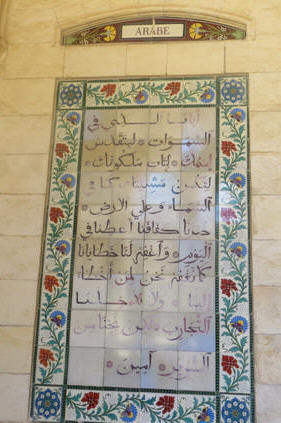 ARABE
أبانا الذي في
السموات * ليتقدس
اسمك * ليأت ملكوتك *
لتكن مشيئتك كما في
السماء وعلى الأرض *
خبزنا كفافنا أعطنا في
اليوم * واغفر لنا خطايانا
كما نغفر نحن لمن أخطأ
إلينا * ولا تدخلنا
التجارب * لكن نجنا من
الشرير آمين *